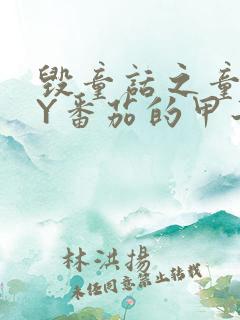 毁童话之童
Y番茄的甲
林洪揚
未经同意禁止转载